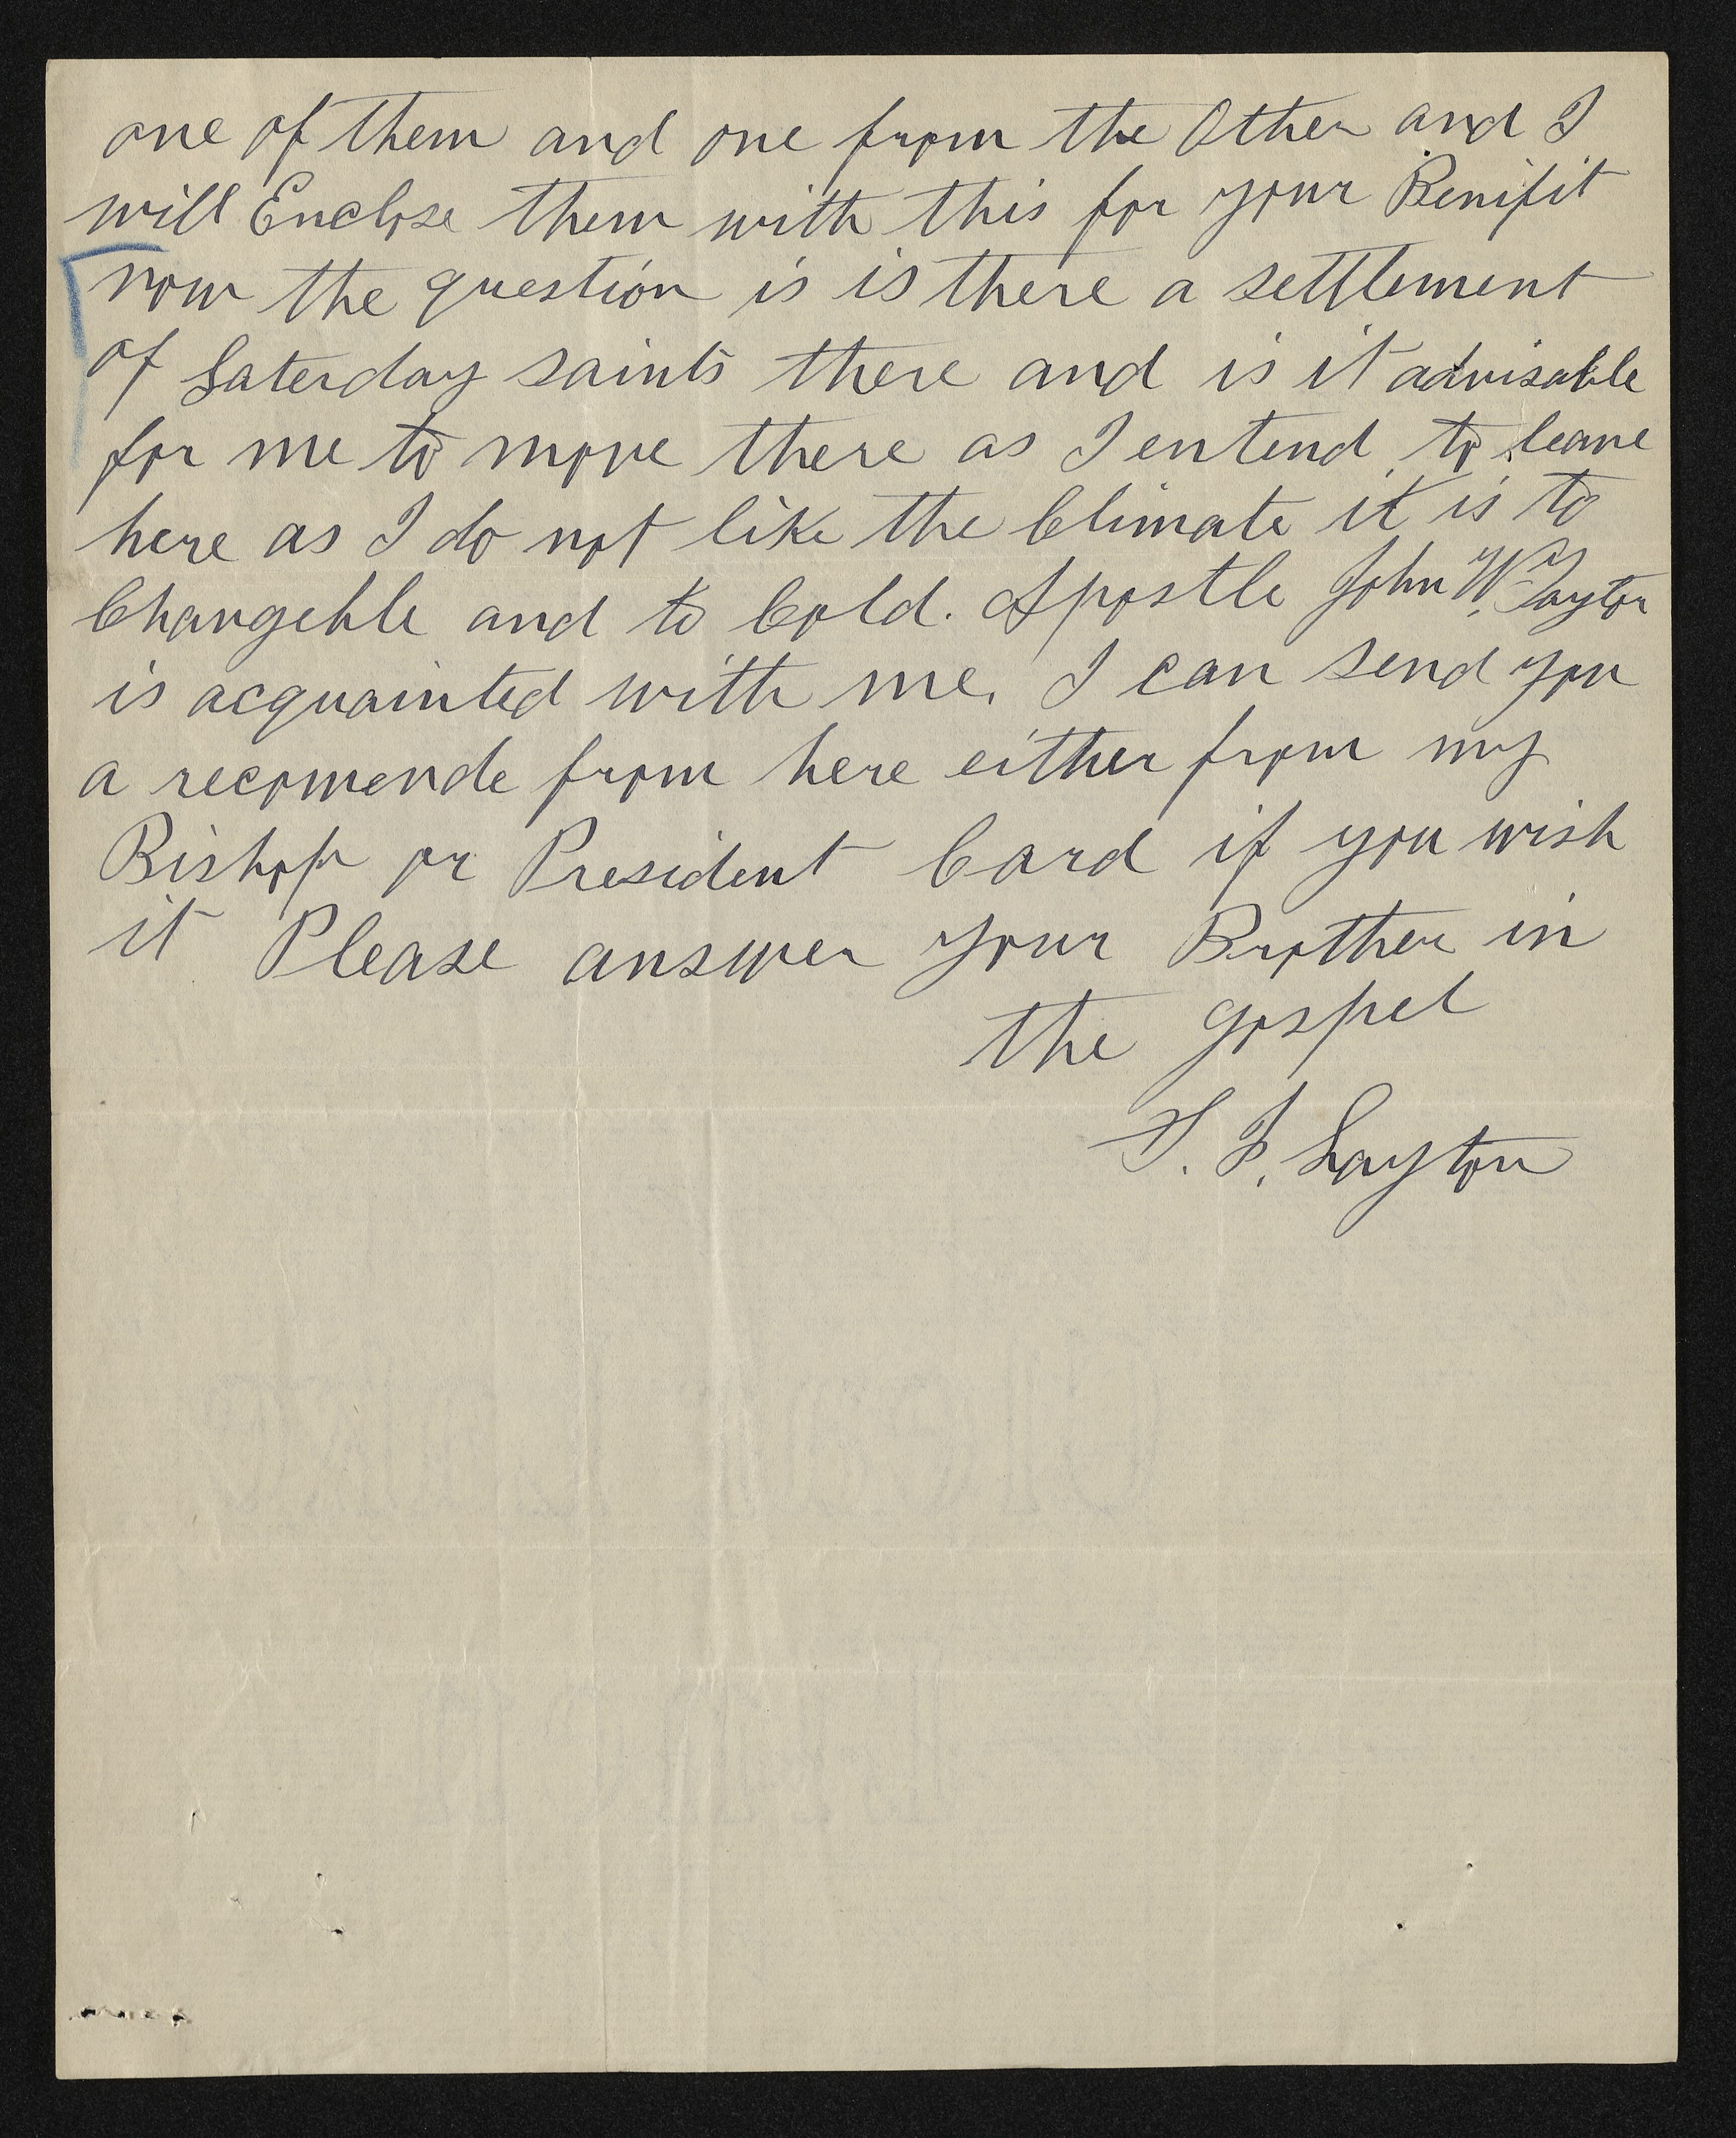 one of them and one from the Other and I
will Enclose them with this for your Benifit
now the question is is there a settlement
of Laterday saints there and is it advisable
for me to move there as I entend to leave
here as I do not like the Climate it is to
Changeble and to Cold. Apostle John W. Taylor
is acquainted with me. I can send you
a recomende from here either from my
Bishop or President Card if you wish
it Please answer your Brother in
the gospel
Layton